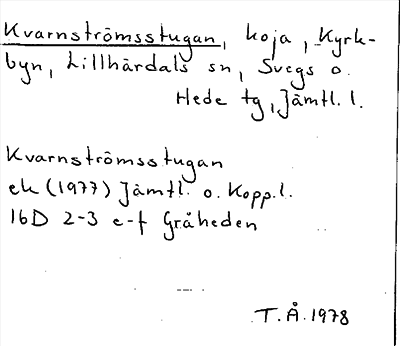 Kvarnströmsstugan, koja, Kyrk-
byn, Lillhärdals sn, Svegs o.
Hede tg, Jämtl. l.
Kvarnströmsstugan
ek (1977) Jämtl. o. Kopp. l.
16D 2-3 e-f Gråheden
T.Å. 1978